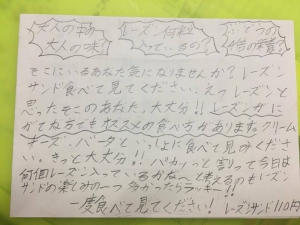 大人の味
大人の味?
レーズン何粒
入っているの?
4倍の栄養?
そこにいるあなた気になりませんか?レーズン
サンド食べて見てください。えっレーズンと
思ったそこのあなた、大丈夫!!レーズンがに
がてな方でもオススメの食べ方があります。クリーム
チーズ・バターといっしょに食べて見みくださ
い。きっと大丈夫!!パカッっと割って今日は
何個レーズン入っているかな〜と考えるのもレーズン
サンドの楽しみの一つ多かったらラッキー!!
一度食べて見てください! レーズンサンド110円